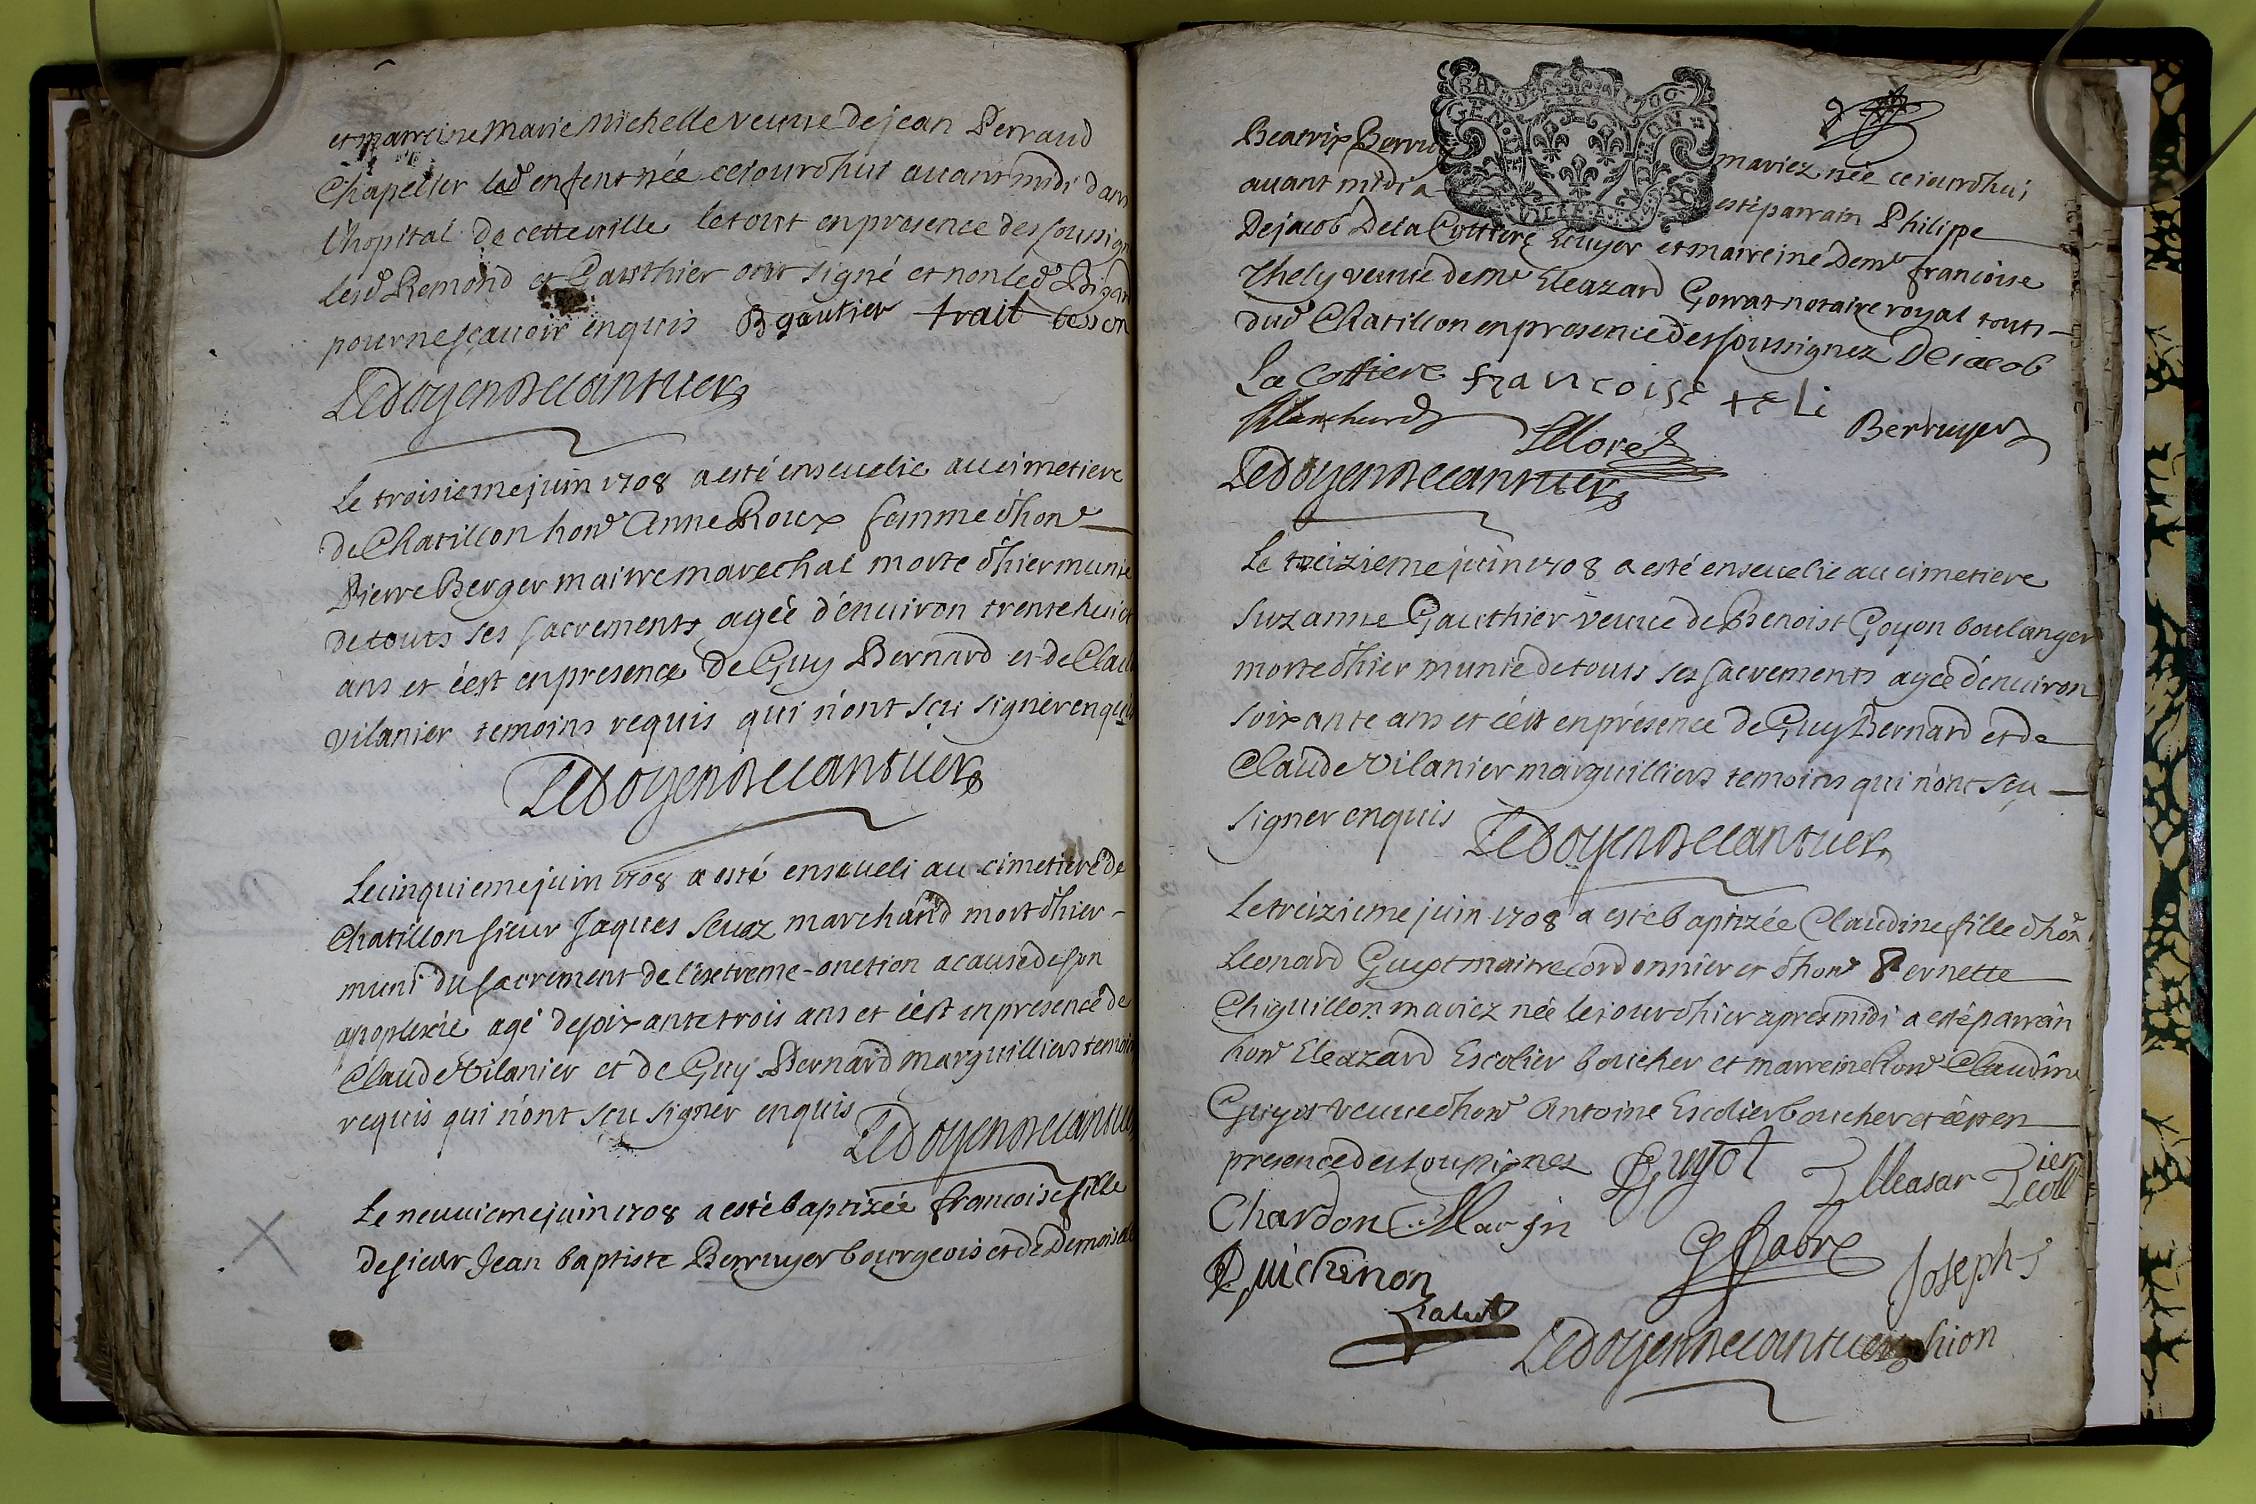 et marreine Marie Michelle veuve de jean Perraud
Chapelier led enfent née cejourdhui avant midi dans
l'hopital de cette ville le tout en presence des soussign
lesd Remond et Gauthier ont signé et non led
pour ne sçavoir enquis B gautier trait besson
Ledoyen Decantuer
Le troisieme juin 1708 a esté ensevelie au cimetiere
de Chatillon hone Anne Roux femme d'hone
Pierre Berger maitre marechal morte d'hier munie
de touts ses sacrements agée d'environ trente huict
ans et c'est en presence de Guy Bernard et de Claud
Vilanier temoins requis qui n'ont sçu signer enquis
Ledoyen Decantuer
Le cinquieme juin 1708 a esté enseveli au cimetiere de
Chatillon sieur Jaques Sevoz marchand mort d'hier
muni du sacrement de l'extreme-onction a cause de son
apoplexie agé de soixante trois ans et c'est en presence de
Claude Vilanier et de Guy Bernard marguilliers temoin
requis qui n'ont sçu signer enquis
Ledoyen Decantuer
Le neuvieme juin 1708 a esté baptizée francoise fille
de sieur Jean baptiste Berruyer bourgeois et de Demoiselle
GEN. D
Beatrix Berruy mariez née cejourdhui
avant midi a esté parrain Philippe
Dejacob De la Cottiere Ecuyer et marreine Deme francoise
Thely veuve de me Eleazard Gorrat notaire royal touts
dud Chatillon en presence des soussignez Dejacob
La Cottiere francoise teli
Blanchard Berruyer
Morel
Ledoyen Decantuer
Le treizieme juin 1708 a esté ensevelie au cimetiere
Suzanne Gauthier veuve de Benoist Goyon boulanger
morte d'hier munie de touts ses sacrements agée d'environ
soixante ans et c'est en présence de Guy Bernard et de
Claude Vilanier marguilliers temoins qui n'ont sçu
signer enquis
Ledoyen Decantuer
Le treizieme juin 1708 a esté baptizée Claudine fille d'hon
Leonard Guyot maitre cordonnier et d'hone Pernette
Chiquillon mariez née le jour d'hier apres midi a esté parrain
hone Eleazard Escolier boucher et marreine hone Claudine
Guyot veuve d'hone Antoine Escolier boucher et c'est en
presence des soussignez Guyot Elleasar Ecollier
Chardon Marin
G Fabre
Guichenon Joseph
Ledoyen Decantuer chion